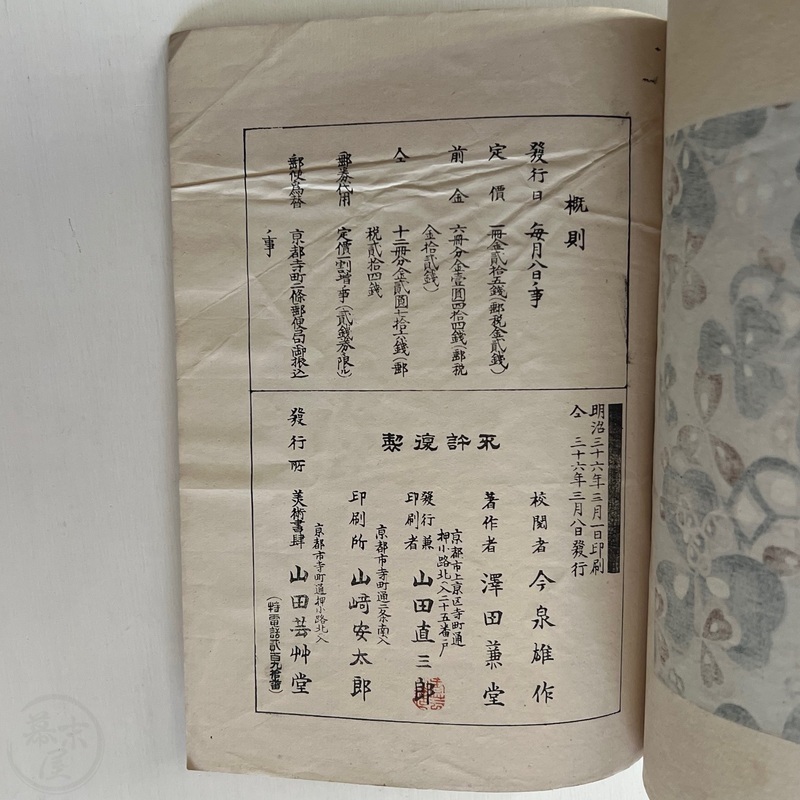 概則
發行日 每月八日ノ事
定價 一冊金貳拾五錢(郵稅金貳錢)
前金 六冊分金壹圓四拾四錢(郵稅
金拾貳錢)
仝 十二冊分金貳圓七拾六錢(郵
稅貳拾四錢
(郵券代用 定價一割增ノ事(貳錢券ニ限ル)
郵便爲替 京都寺町二條郵便局ヘ御振込
ノ事
明治三十六年三月一日印刷
仝 三十六年三月八日發行
校閱者 今泉雄作
著作者 澤田蒹堂
不許復製
京都市上京區寺町通
押小路北入二十五番戶
發行兼
印刷者 山田直三郎
京都市寺町通二条南入
印刷所 山﨑安太郎
京都市寺町通押小路北入
發行所 美術書肆 山田芸艸堂
(特電話貳百九拾番)